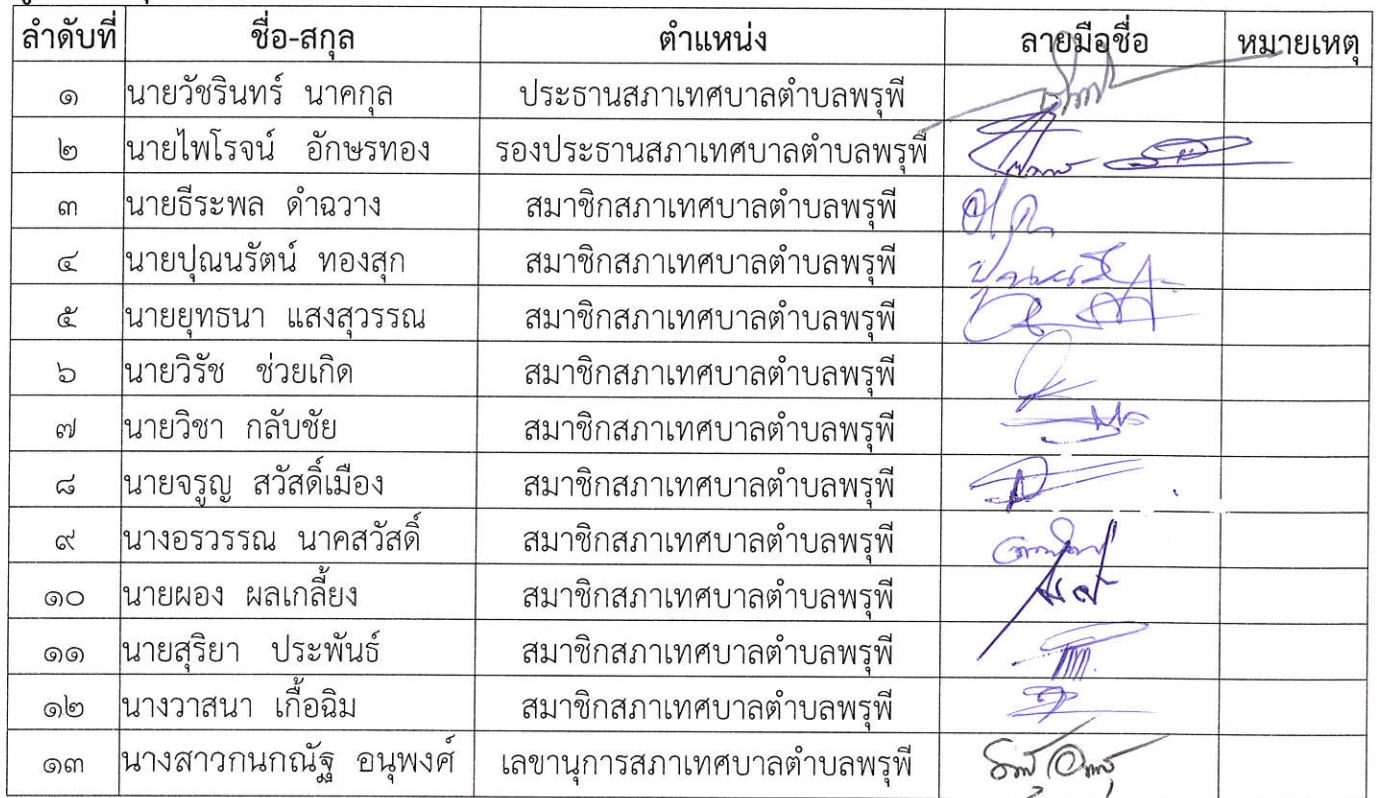 ลำดับที่ ชื่อ-สกุล ตำแหน่ง ลายมือชื่อ หมายเหตุ
๑ นายวัชรินทร์ นาคกุล ประธานสภาเทศบาลตำบลพรุพี
๒ นายไพโรจน์ อักษรทอง รองประธานสภาเทศบาลตำบลพรุพี
๓ นายธีระพล ดำฉวาง สมาชิกสภาเทศบาลตำบลพรุพี
๔ นายปุณนรัตน์ ทองสุก สมาชิกสภาเทศบาลตำบลพรุพี
๕ นายยุทธนา แสงสุวรรณ สมาชิกสภาเทศบาลตำบลพรุพี
๖ นายวิรัช ช่วยเกิด สมาชิกสภาเทศบาลตำบลพรุพี
๗ นายวิชา กลับชัย สมาชิกสภาเทศบาลตำบลพรุพี
๘ นายจรูญ สวัสดิ์เมือง สมาชิกสภาเทศบาลตำบลพรุพี
๙ นางอรวรรณ นาคสวัสดิ์ สมาชิกสภาเทศบาลตำบลพรุพี
๑๐ นายผอง ผลเกลี้ยง สมาชิกสภาเทศบาลตำบลพรุพี
๑๑ นายสุริยา ประพันธ์ สมาชิกสภาเทศบาลตำบลพรุพี
๑๒ นางวาสนา เกื้อฉิม สมาชิกสภาเทศบาลตำบลพรุพี
๑๓ นางสาวกนกณัฐ อนุพงศ์ เลขานุการสภาเทศบาลตำบลพรุพี